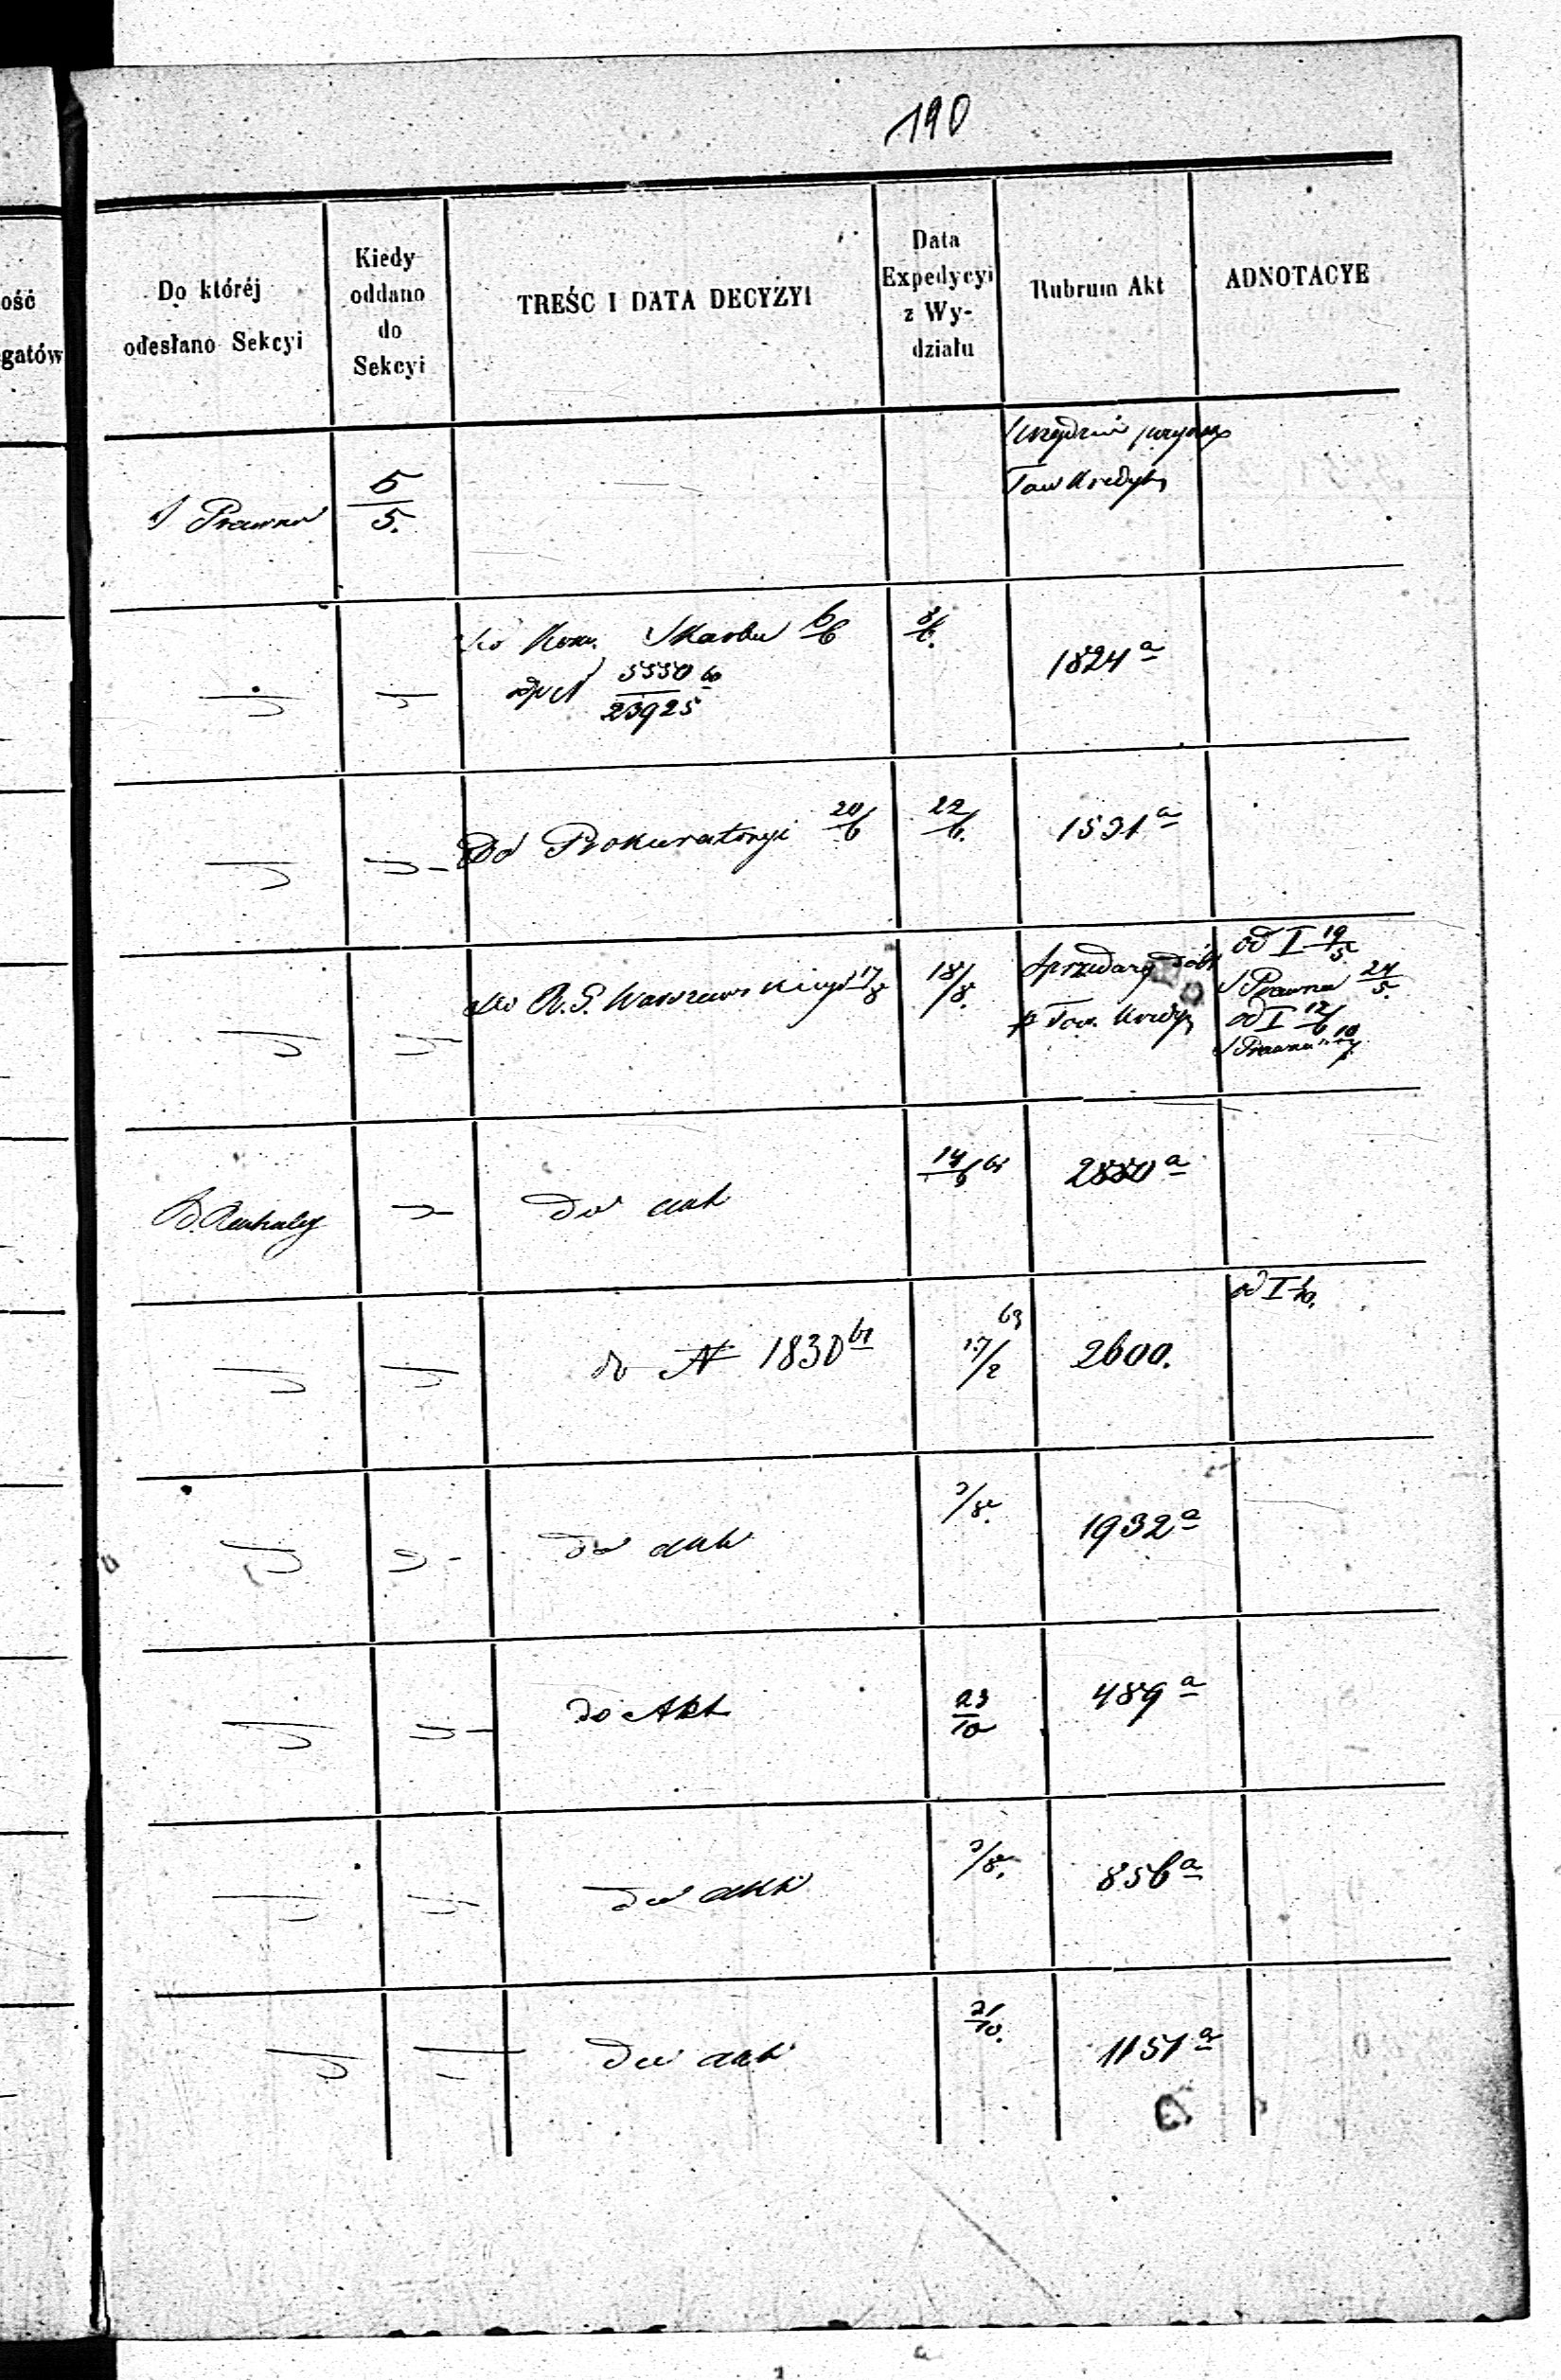 190
ość
gatów
Do któréj
odesłano Sekcyi
Kiedy
oddano
do
Sekcyi
TREŚC I DATA DECYZYI
Data
Expedycyi
z Wy-
działu
Rubrum Akt
ADNOTACYE
S Prawna
5/5.
Tow Kredyt
Do Kom. Skarbu 6/6
5550/23925
8/6.
1824 a
Do Prokuratoryi 20/6
22/6.
1531 a
do R. G. Warszawskiego 17/8
18/8.
Sprzedarz dóbr
p Tow. Kredyt
od I 19/5
S Prawna 24/5.
od I 12/6
S Prawna 10/7
do akt
14/6
2880 a
do N 1830
63
17/2
2600.
od I
do akt
3/8.
1932 a
do Akt
23/10
489 a
do akt
3/8.
856 a
do akt
21/10.
1151 a